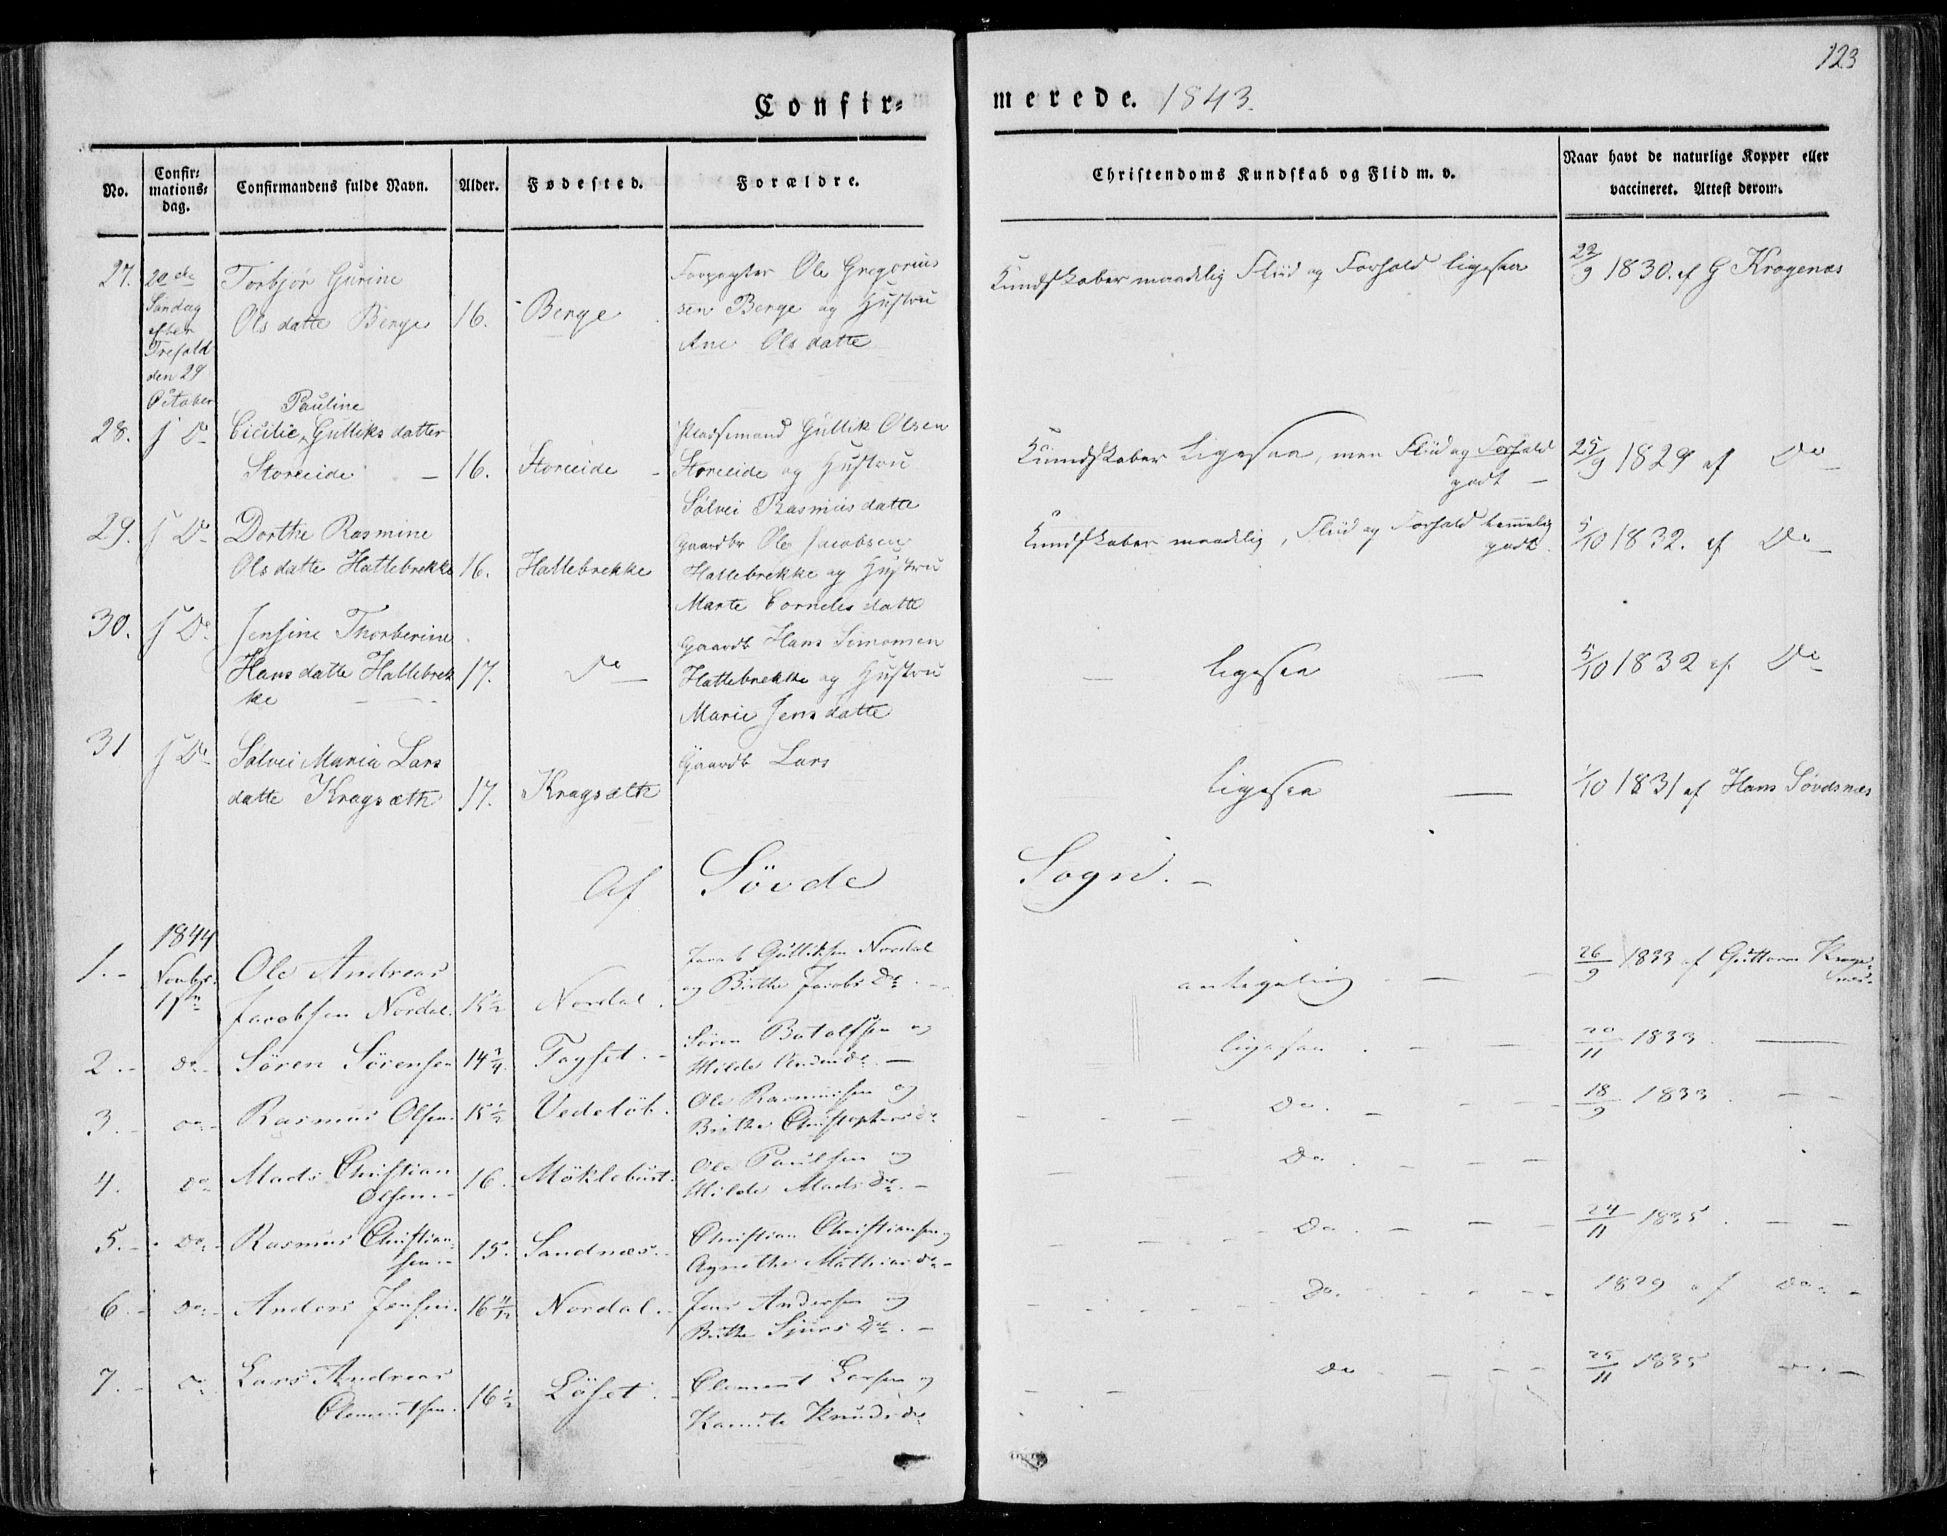 123
Confir=
merede. 1843.
No.
Confir=
mations=
dag.
Confirmandens fulde Navn.
Alder.
Fødested.
Forældre.
Christendoms Kundskab og Flid m. v.
Naar havt de naturlige Kopper eller
vaccineret. Attest derom.
27. 20de Torbjør Gurine
Søndag
efter
Trefold
den 29
October
Olsdatte Berge 16. Berge
Forpagter Ole Gregorius
sen Berge og Hustru
Ane Olsdatte
Kundskaber maadelig Fliid og Forhold ligesaa
22/9 1830. af G Kragenæs
28. Do Pauline
Cicilie Gulliksdatter
Storeeide 16. Storeeide
Pladsemand Gullik Olsen
Storeeide og Hustru
Sølvei Rasmusdatte
Kundskaber ligesaa, men Fliid og Forhold
godt
25/9 1829 af Do
29. Do Dorthe Rasmine
Olsdatte Hattebrekke 16. Hattebrekke
Gaardbr Ole Jacobsen
Hattebrekke og Hustru
Marte Cornelisdatte
Kundskaber maadelig, Fliid og Forhold temmelig
godt.
5/10 1832. af Do
30. Do Jensine Thorberine
Hansdatte Hattebrek
ke 17. Do
Gaardb Hans Simonsen
Hattebrekke og Hustru
Marie Jensdatte
ligesaa
5/10 1832 af Do
31 Do Sølvei Maria Lars
datte Kragsæth 17. Kragsæth
Gaardb Lars
ligesaa
1/10 1831 af Hans Søvdsnæs
Af Søvde Sogn.
1844
1. Novbr.
1ste
Ole Andreas
Jacobsen Nordal. 15 1/2 Nordal.
Jacob Gulliksen Nordal
og Birthe Jacobs Dr.
antagelig
26/9 1833 af Guttorm Krage-
næs
2. do Søren Sørensen 14 3/4 Fagset.
Søren Botolfsen og
Milde Knuds Dr.
ligesaa
20/11 1833.
3. do Rasmus Olsen. 15 1/2 Vedeløb.
Ole Rasmussen og
Birthe Christophers Dr
Do.
18/9 1833.
4. Do Mads Christian
Olsen. 16. Møklebust.
Ole Paulsen og
Milde Mads Dr.
Do
5. Do. Rasmus Christian-
sen. 15. Sandnæs.
Christian Christiansen og
Agnethe Mathias Dr
Do
24/11 1835.
6. Do Anders Jensen. 16 11/12 Nordal.
Jens Andersen og
Birthe Sjurs Dr.
Do.
1829 af Do
7. Do Lars Andreas
Clementsen. 16 1/2 Løset.
Clement Larsen og
Kamite Knuds Dr
Do
25/11 1835 Do.